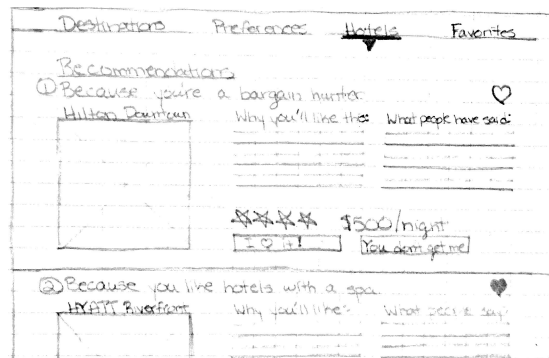 Destinations Preferences Hotels Favorites
Recommendations
① Because you're a bargain hunter
Hilton Downtown Why you'll like this: What people have said:
$500/night
I ♡ it! You don't get me
② Because you like hotels with a spa
HYATT Riverfront Why you'll like: What people say: